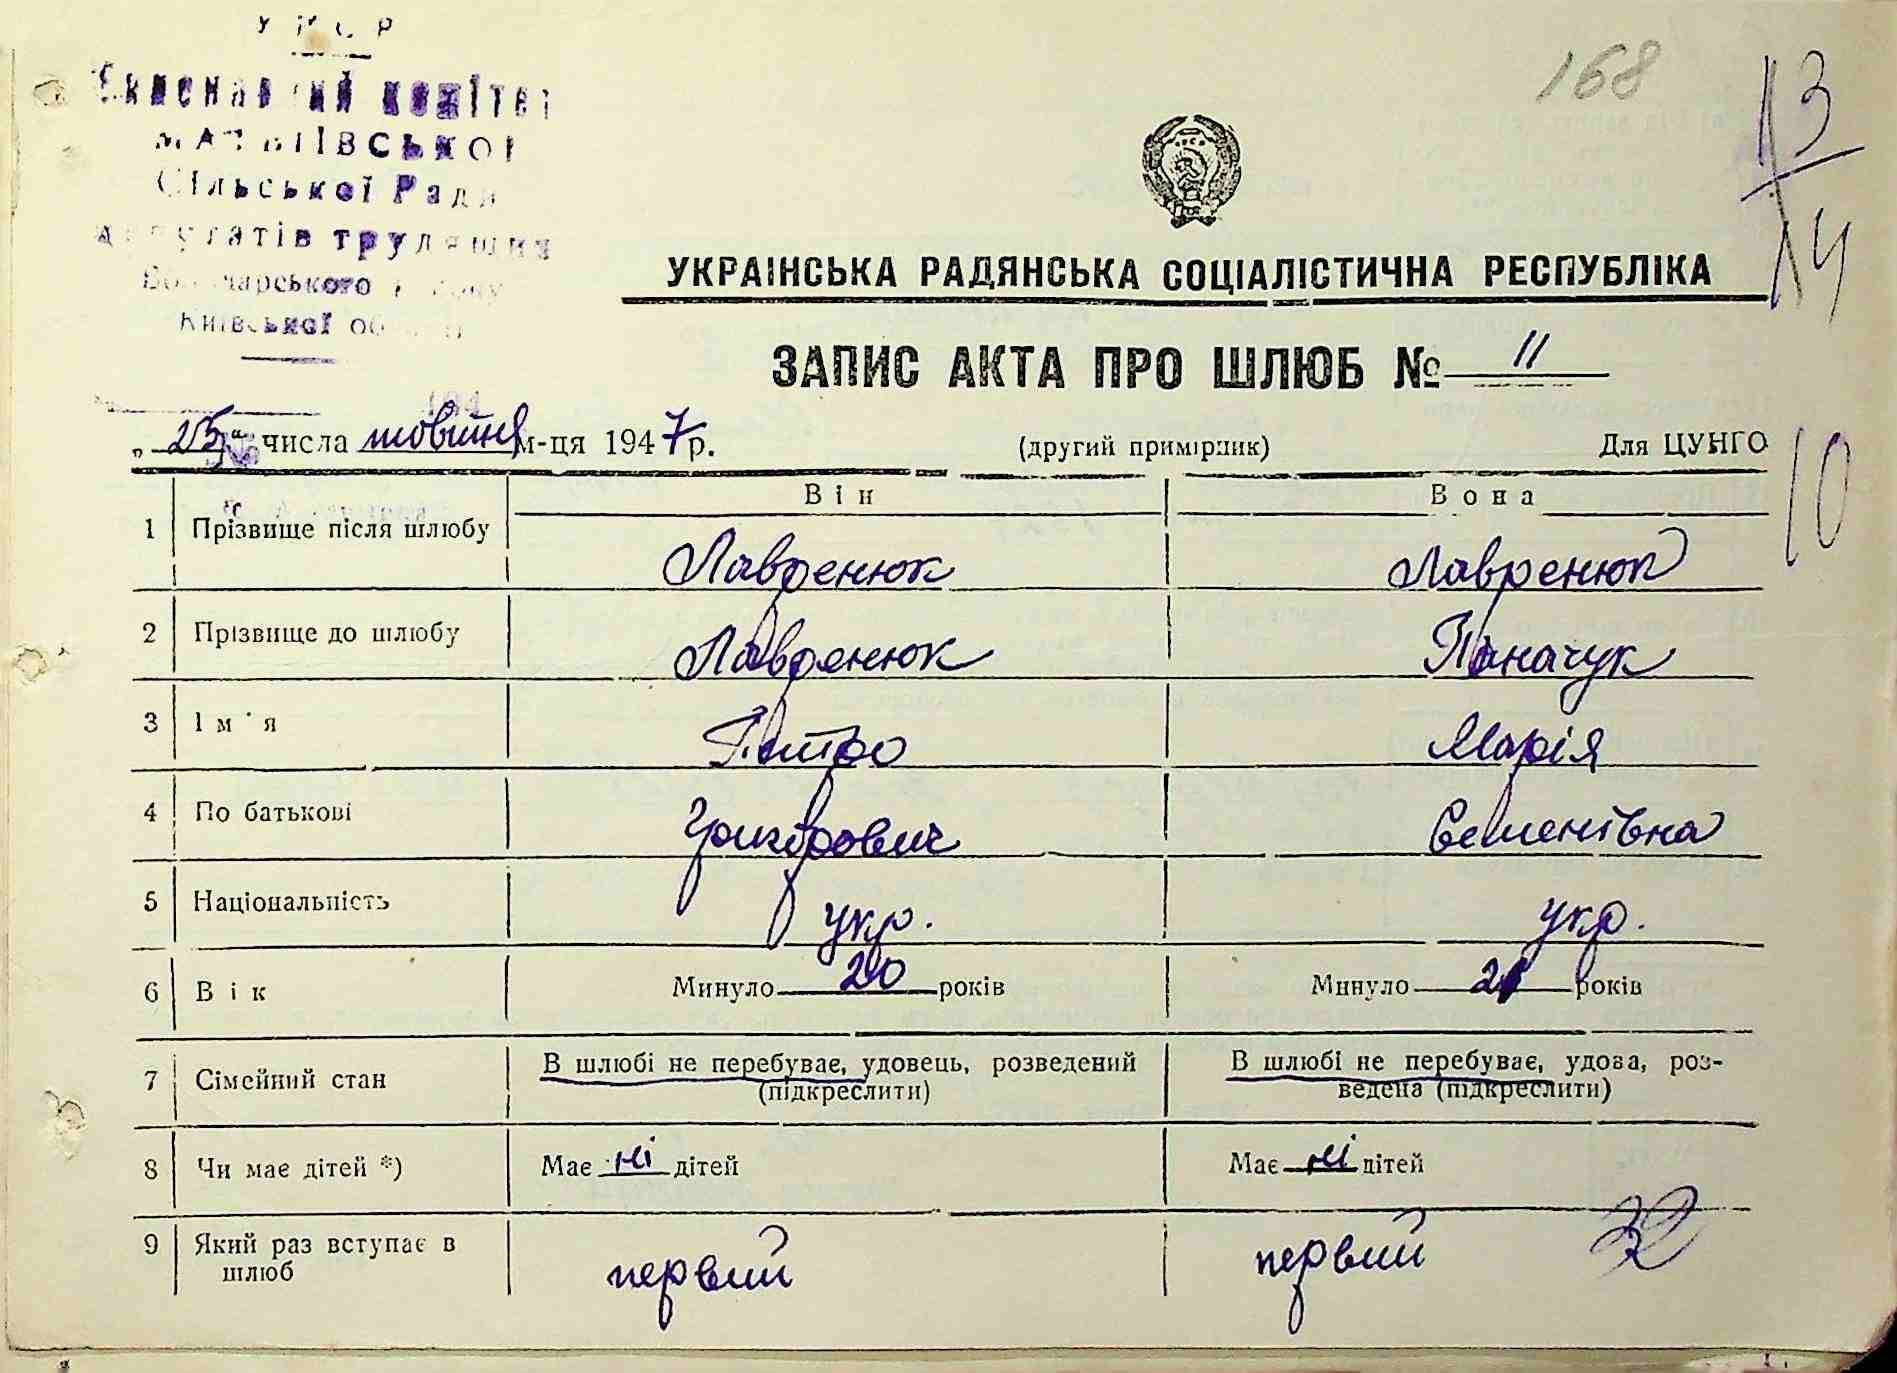 УРСР
Виконавчий комітет
МАТВІЇВСЬКОЇ
Сільської Ради
депутатів трудящих
Київської області
168
13
14
УКРАЇНСЬКА РАДЯНСЬКА СОЦІАЛІСТИЧНА РЕСПУБЛІКА
ЗАПИС АКТА ПРО ШЛЮБ № 11
„25“ числа жовтня м-ця 1947 р. (другий примірник) Для ЦУНГО
10
Він Вона
1 Прізвище після шлюбу Лавренюк Лавренюк
2 Прізвище до шлюбу Лавренюк Паначук
3 Ім'я Петро Марія
4 По батькові Григорович Семенівна
5 Національність укр. укр.
6 Вік Минуло 20 років Минуло 21 років
7 Сімейний стан В шлюбі не перебуває, удовець, розведений В шлюбі не перебуває, удова, роз-
(підкреслити) ведена (підкреслити)
8 Чи має дітей *) Має ні дітей Має ні дітей
9 Який раз вступає в первий первий 32
шлюб